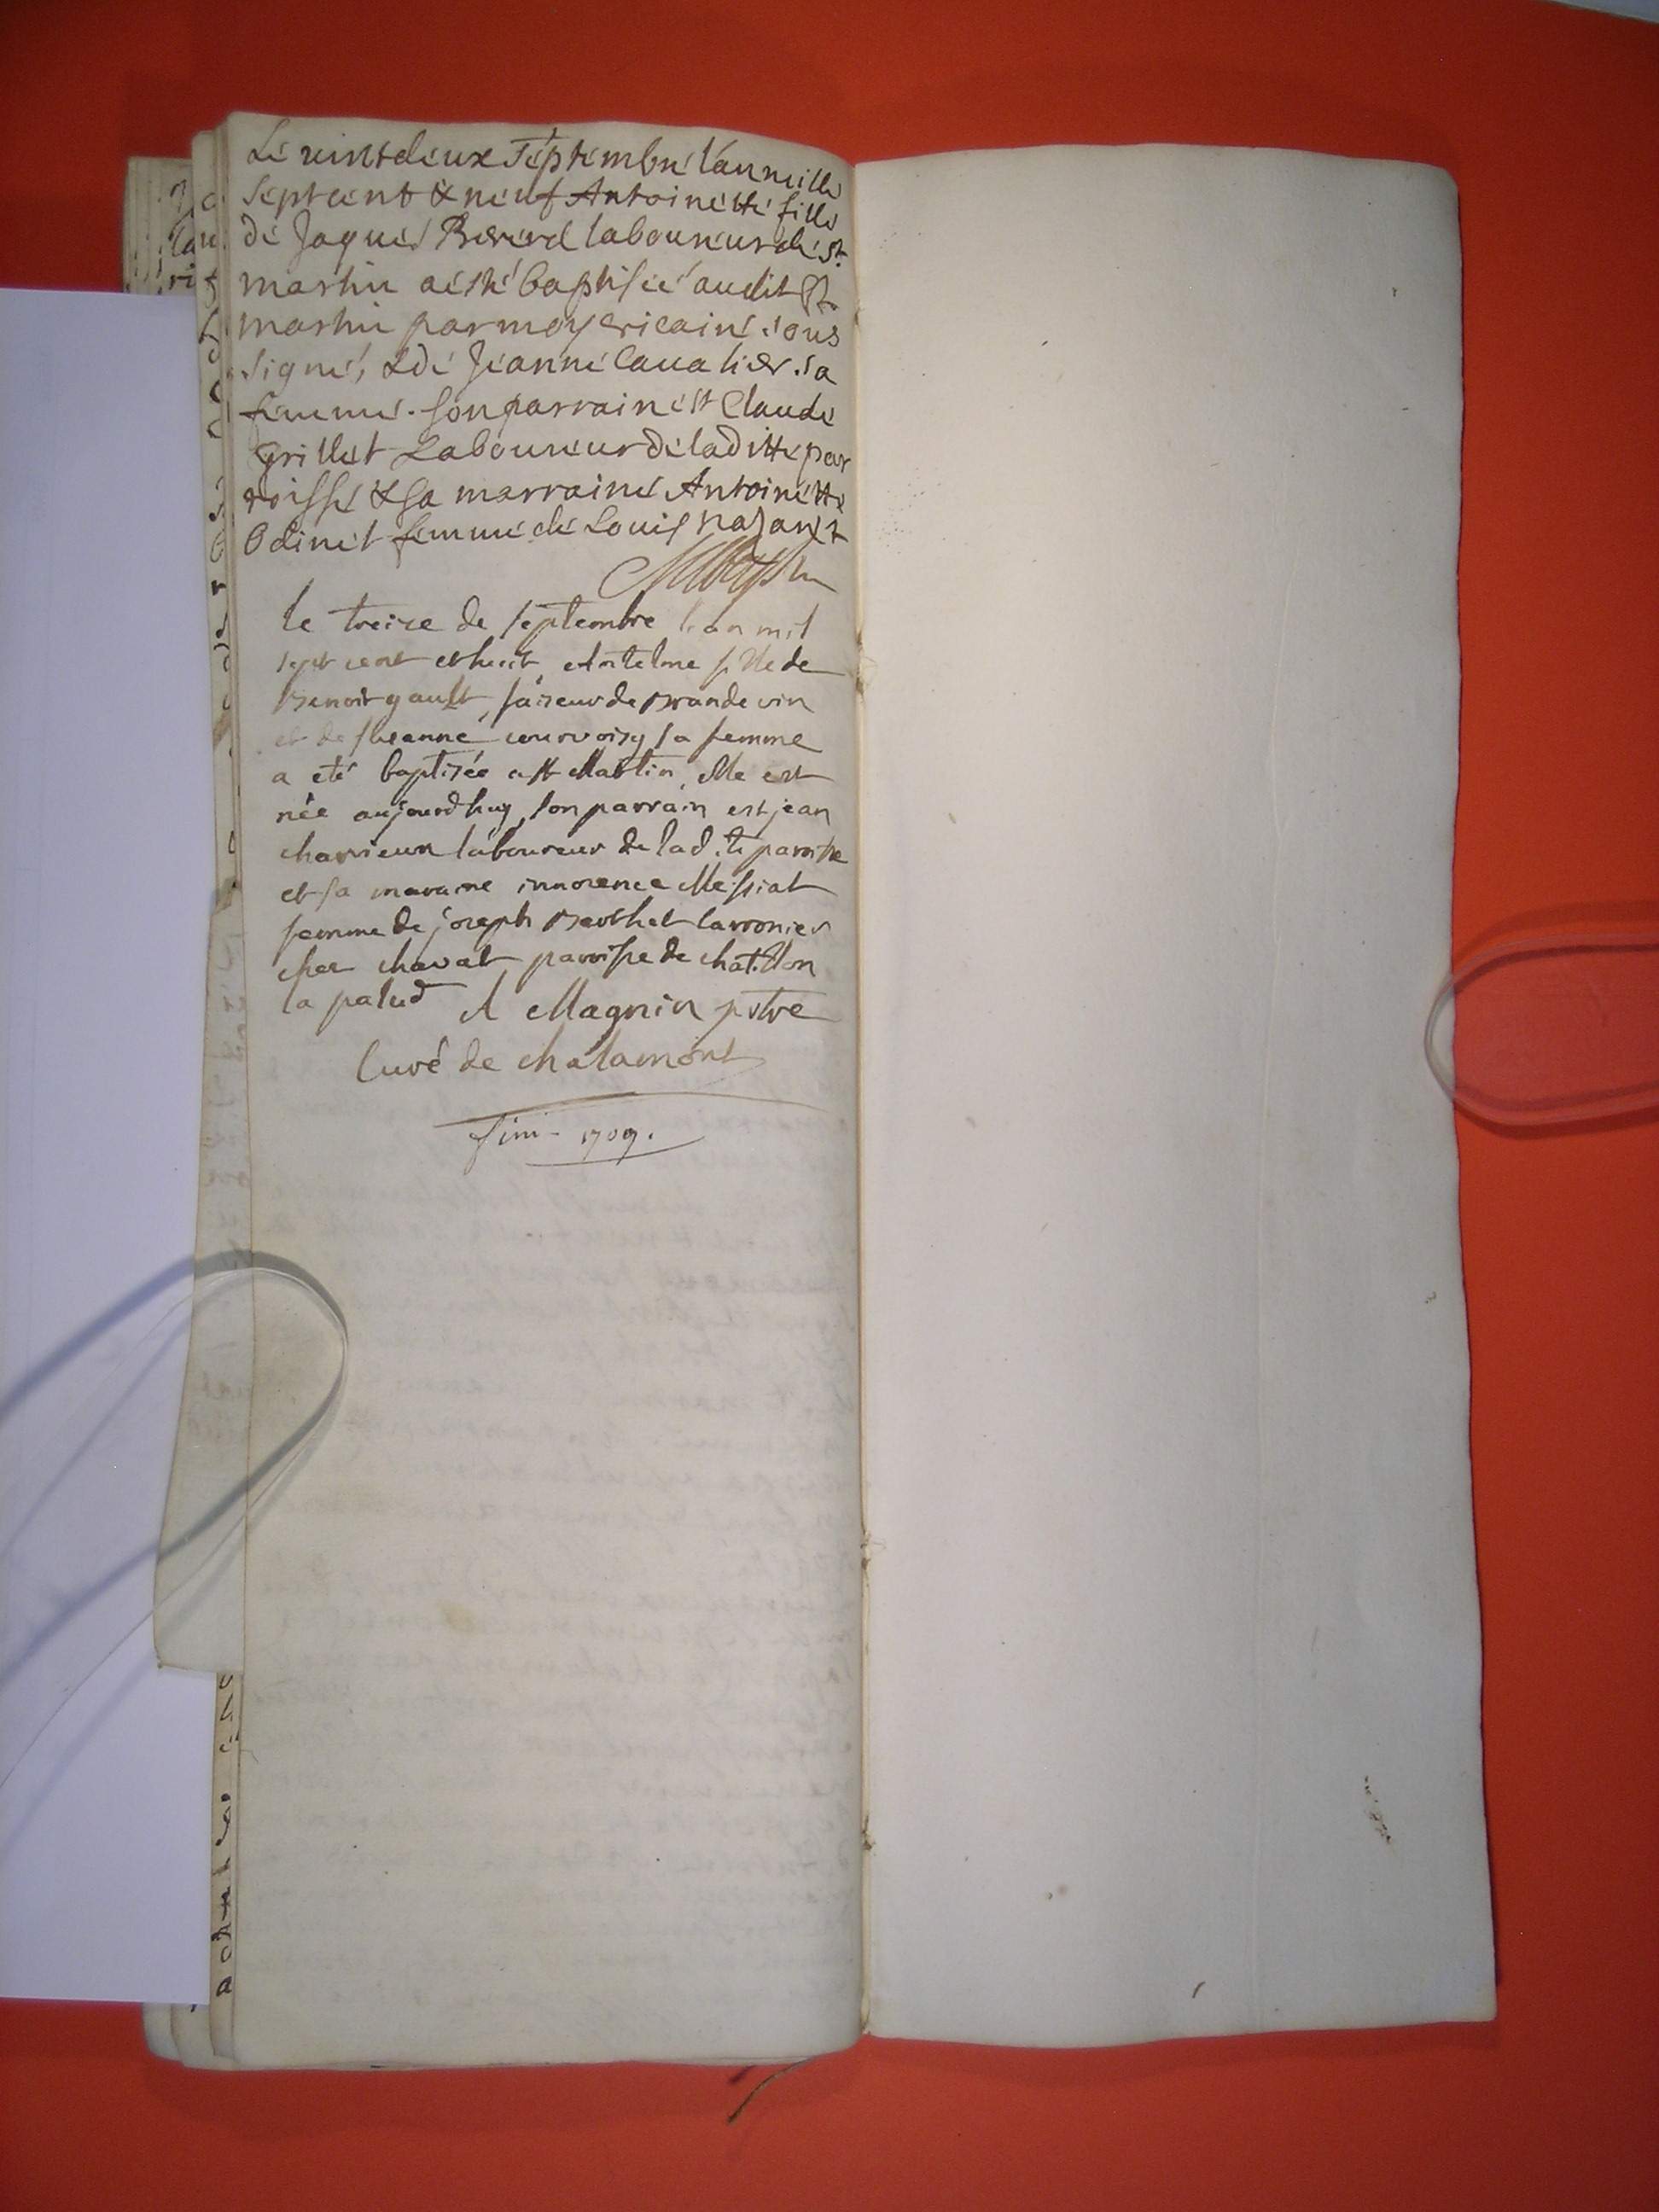 Le vintdeux septembre l'an mille
sept cent & neuf Antoinette fille
de Jaques Berérd laboureur de St.
martin a esté baptisée audit St.
martin par moy vicaire sous
signé, & de Jeanne Cavalier sa
femme. son parrain est Claude
Grillet Laboureur de laditte par
roisse & sa marraine Antoinette
Odinet femme de Louis
le treize de septembre l'an mil
sept cent et huit, Antelme fille de
Benoit gault, faiseur de Brandevin
et de courvoisy sa femme
a eté baptisée a St Martin, elle est
née aujourdhuy, son parrain est jean
charvieux laboureur de lad.te paroisse
et sa maraine innocence Messiat
femme de joseph Berthet
chez chavat parroisse de chatillon
la palud A Magnin pstre
Curé de chalamont
fini - 1709.